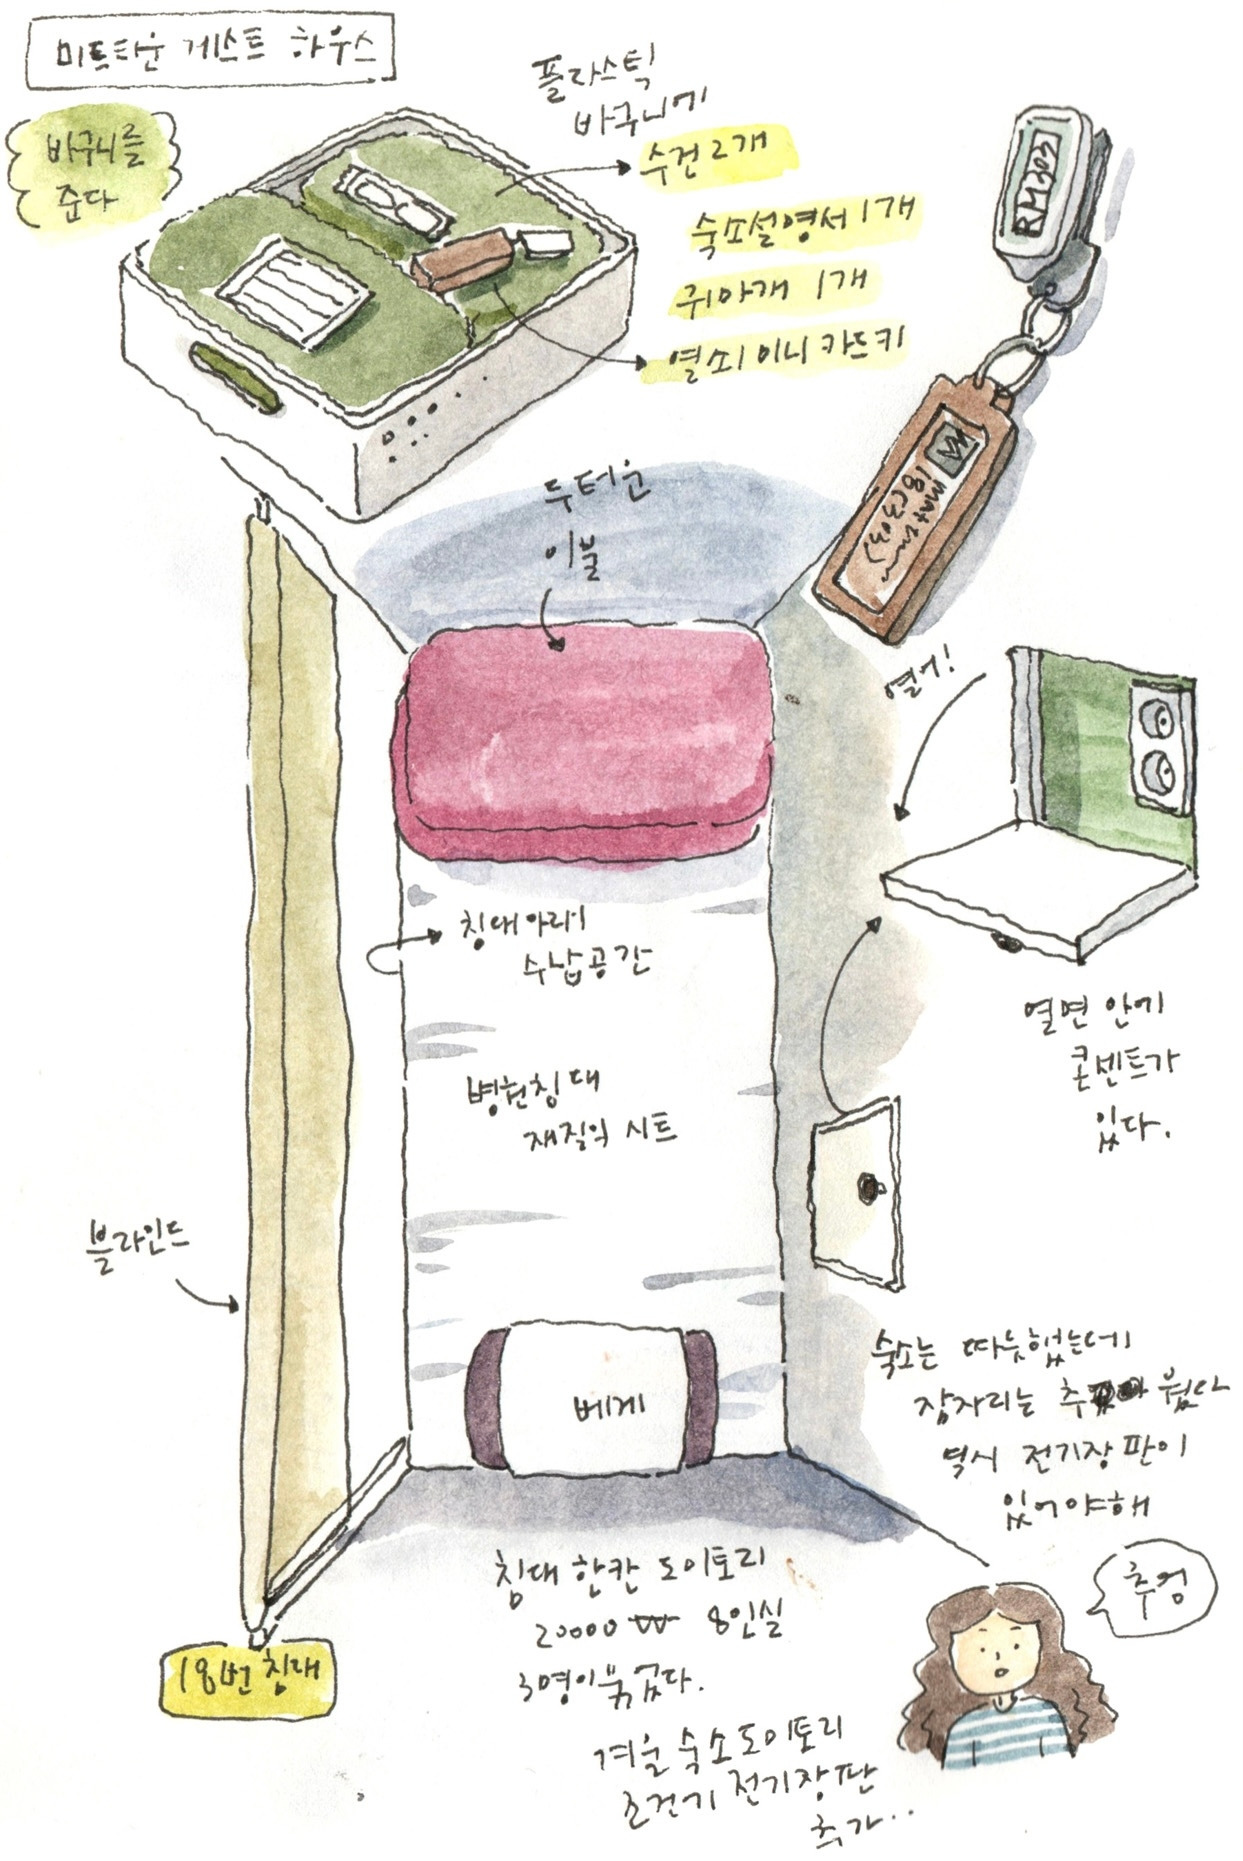 미드타운 게스트 하우스
바구니를
준다
플라스틱
바구니에
수건 2개
숙소설명서 1개
귀마개 1개
열쇠 미니 카드키
RM303
18(303)
두터운
이불
열어!
침대아래
수납공간
열면 안에
콘센트가
있다.
병원침대
재질의 시트
블라인드
베게
숙소는 따뜻했는데
잠자리는 추웠다
역시 전기장판이
있어야해
추엉
침대 한칸 도미토리
20000₩ 8인실
3명이 묶었다.
18번 침대
겨울 숙소 도미토리
조건기 전기장판
추가..